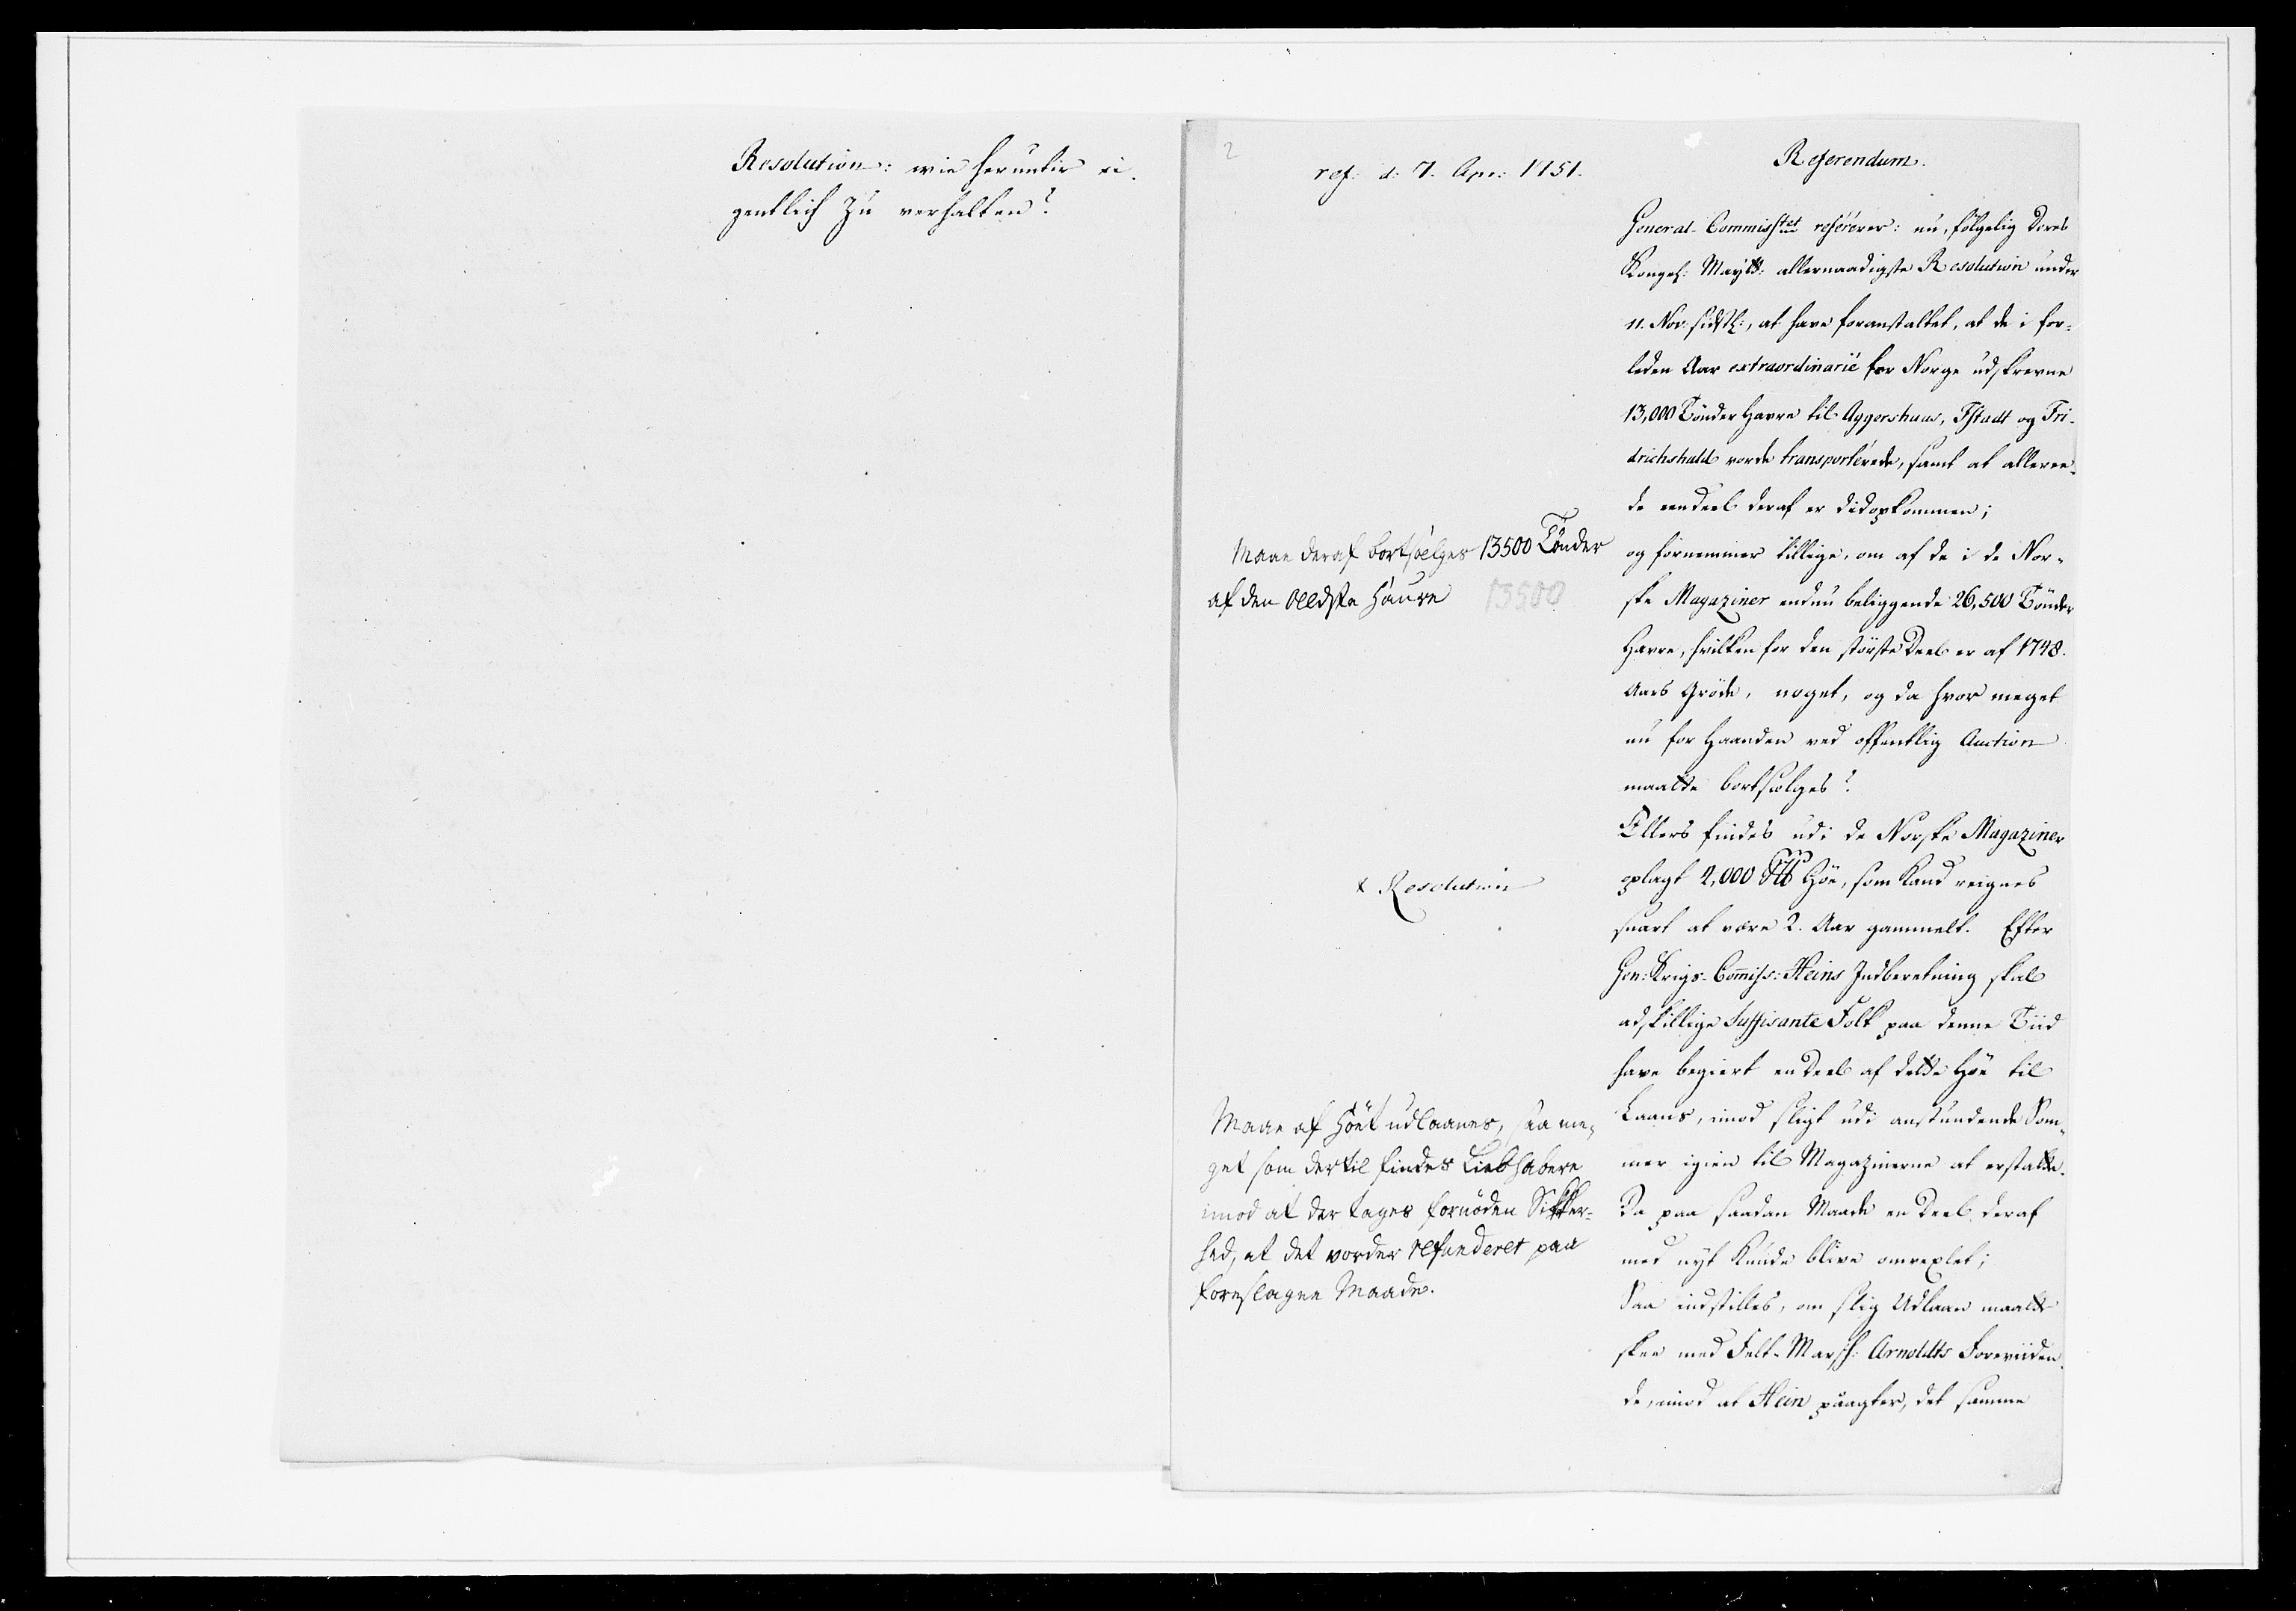 Resolution: wie herunter ei-
gentlich zu verhalten?
2
ref: d: 7. Apr: 1751.
Referendum.
General-Commisstet reférérer: nu, følgelig Deres
Kongel: Mayts: allernaadigste Resolution under
11. Nov: sidstl:, at have foranstaltet, at de i for-
leden Aar extraordinarié for Norge udskrevne
13,000 Tönder Havre til Aggershuus, Fstadt og Fri-
drichshald vorde transportérede, samt at alleree-
de eendeel deraf er didopkommen;
og fornemmer tillige, om af de i de Nor-
ske Magaziner endnu beliggende 26,500 Tönder
Havre, hvilken for den störste Deel er af 1748.
Aars Gröde, noget, og da hvor meget
nu for Haanden ved offentlig Auction
maatte bortsælges?
Maae deraf bortsælges 13500 Tönder
af den ældste Haure 13500
Ellers findes udi de Norske Magaziner
oplagt 4,000 Höe, som Kand reignes
snart at være 2. Aar gammelt. Efter
Gen: Krigs-Commiss: Heins Indberetning skal
adskillige Suffisante Folk paa denne Tiid
have begiert en Deel af dette Höe til
Laans, imod sligt udi anstundende Som-
mer igien til Magazinerne at erstatte.
Da paa saadan Maade en Deel deraf
med nyt Kunde blive omvexlet;
Saa indstilles, om slig Udlaan maatte
skee med Felt-Marsch: Arnoldts Foreviiden-
de, imod at Hein paagter, det samme
x Resolution
Maae af Höet udlaanes, saa me-
get som dertil findes Liebhabere
imod at der tages fornöden Sikker-
hed, at det vorder refunderet paa
foreslagne Maade.